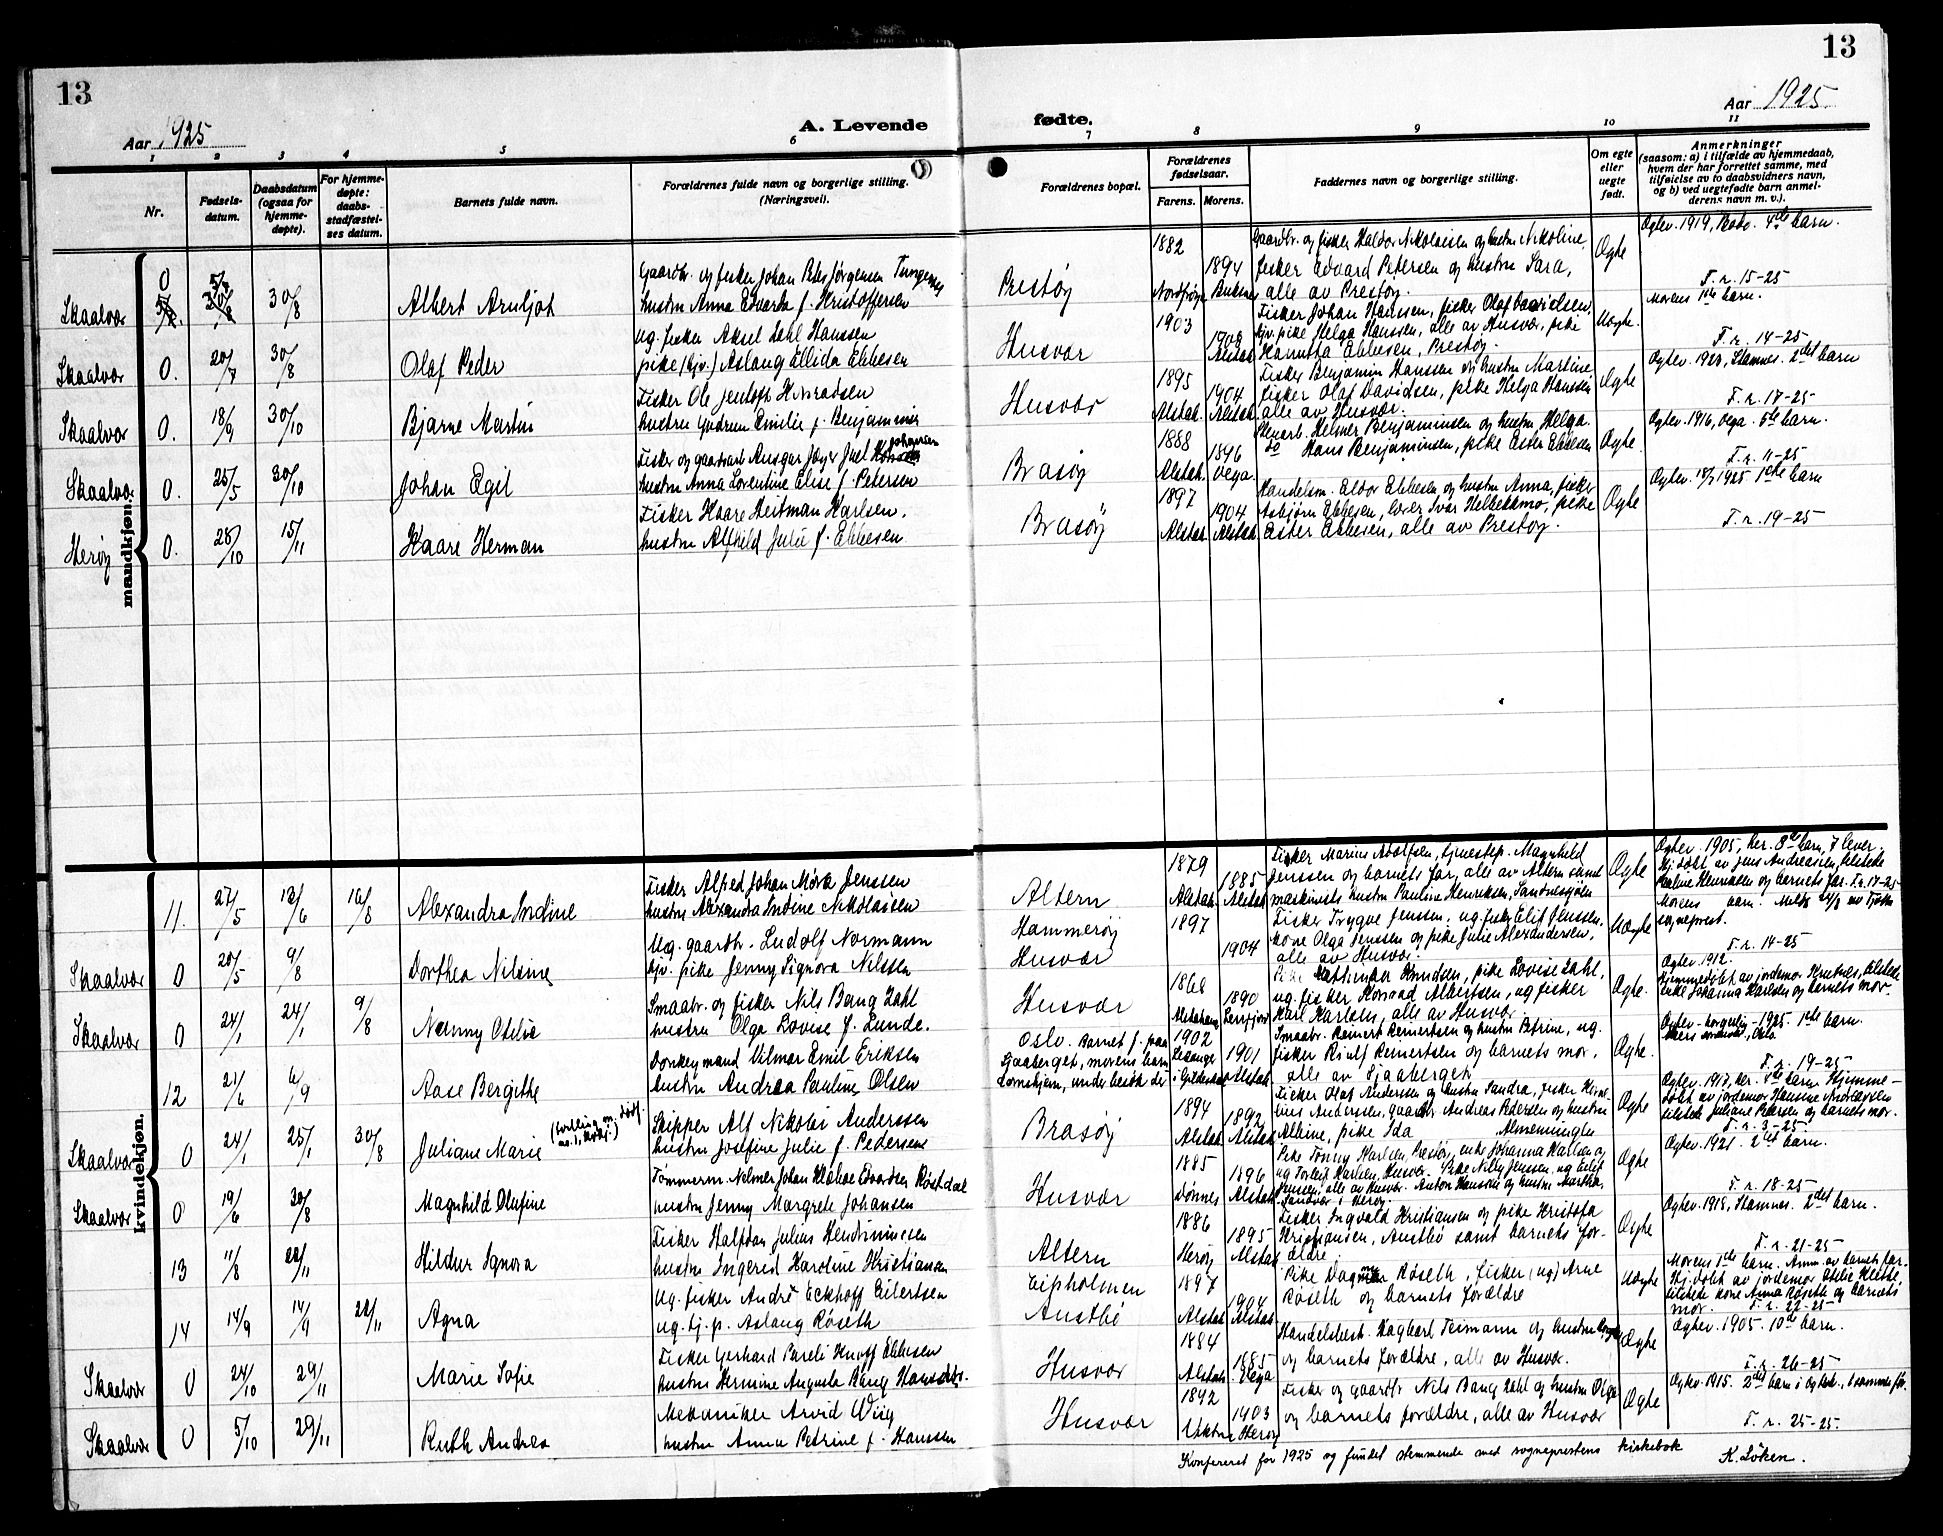 13
13
Aar 1925
A. Levende
fødte.
Aar 1925
1 2 3 4 5 6 7 8 9 10 11
Nr.
Fødsels-
datum.
Daabsdatum
(ogsaa for
hjemme-
døpte).
For hjemme-
døpte:
daabs-
stadfæstel-
ses datum.
Barnets fulde navn.
Forældrenes fulde navn og borgerlige stilling.
(Næringsvei).
Forældrenes bopæl.
Forældrenes
fødselsaar.
Farens. Morens.
Faddernes navn og borgerlige stilling.
Om egte
eller
uegte
født.
Anmerkninger
(saasom: a) i tilfælde av hjemmedaab,
hvem der har forrettet samme, med
tilføielse av to daabsvidners navn,
og b) ved uegtefødte barn anmel-
derens navn m. v.).
mandkjøn.
Skaalvær 0 30/8 Albert Arnljot
Gaardbr. og fisker Johan Peter Jørgensen Tungenes
hustru Anna Edvarda f. Kristoffersen
Prestøy 1882 1894
Gaardbr. og fisker Haldor Nikolaisen og hustru Nikoline,
fisker Edvard Petersen og hustru Sara,
alle av Prestøy.
Ægte
Ægtev. 1919, Bodø. 4de barn.
F. r. 15-25
Skaalvær 0. 20/7 30/8 Olaf Peder
Ug. fisker Aksel Zahl Hanssen
pike (hjv.) Aslaug Ellida Ebbesen
Husvær 1903 1908 Alstah.
Fisker Johan Hanssen, fisker Olaf Davidsen,
hjv. pike Helga Hanssen, alle av Husvær, pike
Ebbesen, Prestøy.
Uægte.
Morens 1ste barn.
F. r. 14-25
Skaalvær 0. 18/9 30/10 Bjarne Martin
Fisker Ole Jentoft Konradsen
hustru Gudrun Emilie f. Benjaminsen
Husvær 1895 Alstah. 1904 Alstah.
Fisker Benjamin Hanssen og hustru Martine,
fisker Olaf Davidsen, pike Helga Hanssen
alle av Husvær.
Ægte
Ægtev. 1923, Stamnes. 2det barn
F. r. 17-25
Skaalvær 0. 25/5 30/10 Johan Egil
Fisker og gaardarb. Ansgar Jæger Juel Johansen
hustru Anna Lorentine Elise f. Petersen
Brasøy 1888 Alstah. 1896 Vega.
Stenarb. Helmer Benjaminsen og hustru Helga.
do Hans Benjaminsen, pike Ester Ebbesen
Ægte.
Ægtev. 1916, Vega. 5te barn.
F. r. 11-25
Herøy 0. 28/10 15/11 Kaare Herman
Fisker Kaare Heitman Karlsen.
hustru Alfhild Julie f. Ebbesen
Brasøy 1897 Alstah. 1904 Alstah.
Handelsm. Eldor Ebbesen og hustru Anna, fisker
Asbjørn Ebbesen, lærer Ivar Helbekkmo, pike
Ester Ebbesen, alle av Prestøy.
Ægte
Ægtev. 18/7 1925 1ste barn
F. r. 19-25
kvindekjøn.
11. 27/5 13/6 16/8 Alexandra Indine
Fisker Alfred Johan Mørk Jenssen
hustru Alexandra Indine Nikolaisen
Altern 1879 Alstah. 1885 Alstah.
Fisker Marius Adolfsen, tjenestep. Magnhild
Jenssen og barnets far, alle av Altern samt
maskinists hustru Pauline Henriksen, Sandnessjøen
Ægte
Ægtev. 1905, her. 8de barn, 7 lever.
Hj.døbt av Jens Andreassen, tilstede
Pauline Henriksen og barnets far. F. r. 17-25
Skaalvær 0 20/5 9/8 Dorthea Nilsine
Ug. gaardbr. Ludolf Normann
hjv. pike Jenny Signora Nilssen
Hammerøy
Husvær 1897 1904
Fisker Trygve Jenssen, ug. fisker Eilif Jenssen,
kone Olga Jenssen og pike Julie Alexandersen,
alle av Husvær.
Uægte
sogneprest.
F. r. 14-25
Skaalvær 0 24/1 24/1 9/8 Nanny Otelie
Smaabr. og fisker Nils Bang Zahl
hustru Olga Lovise f. Lunde.
Husvær 1868 1890
Knudsen, pike Lovise Zahl,
ug. fisker Konrad Albertsen, ug fisker
Karl Karlsen, alle av Husvær.
Ægte.
Ægtev. 1912.
Hjemmedøbt av jordemor Knutnes, tilstede
enke Johanna Karlsen og barnets mor.
12 21/6 6/9 Aase Bergithe
Donkeymand Vilmar Emil Eriksen
hustru Andrea Pauline Olsen
Oslo. Barnet f. paa
Gaaberget, morens barn-
domshjem, under besøk der
1902 1901 Alstah.
Smaabr. Reinert Reinertsen og hustru Petrine, ug.
fisker Rolf Reinertsen og barnets mor,
alle av Gjaaberget.
Ægte.
Ægtev. borgerlig 1925. 1ste barn.
F. r. 19-25
Skaalvær 0 24/1 25/1 30/8 Juliane Marie
(tvilling m. dødf. nr. 1, )
Skipper Alf Nikolai Anderssen
hustru Josefine Julie f. Pedersen
Brasøy 1894 Alstah. 1892 Alstah.
Fisker Olaf Andersen og hustru Sandra, fisker
Andersen, gaardbr Andreas Pedersen og hustru
Albine, pike Ida
Ægte
Ægtev. 1917, her. barn Hjemme-
døbt av jordemor Hansine Andreassen
tilstede Juliane Petersen og barnets mor.
F. r. 3-25
Skaalvær 0 19/6 30/8 Magnhild Olufine
Tømmerm. Nelmer Johan Edvardsen Røstdal
hustru Jenny Margrete Johansen
Husvær 1885 Dønnes 1896 Alstah.
Pike Tonny Karlsen, Prestøy, enke Johanna Karlsen og
ug Torleif Karlsen, Husvær. Pike Nelly Jenssen, ug Eilif
Jenssen, alle av Husvær. Anton Hanssen og hustru Martha,
Sandvær i Herøy.
Ægte
Ægtev. 1921. 2det barn.
F. r. 18-25
13 11/8 22/11 Hildur Ignora
Fisker Halfdan Julius Hendriksen
hustru Ingerid Karoline Kristiansen
Altern 1886 Herøy 1895 Alstah.
Fisker Ingvald Kristiansen og pike Kristofa
Kristiansen, Austbø samt barnets for-
ældre.
Ægte
Ægtev. 1918, Stamnes. 2det barn.
F. r. 21-25
14 14/9 14/9 22/11 Agna
Ug. fisker André Eckhoff Eilertsen
ug. tj. p. Aslaug Røseth
Eipholmen
Austbø 1897 Alstah. 1904 Alstah.
Pike Dagmar Røseth, fisker (ug) Arne
Røseth og barnets forældre
Uægte
Morens 1ste barn. Anm. av barnets far.
Hj. døbt av jordemor Otelie Klette,
tilstede kone Anna Røseth og barnets
mor. F. r. 22-25
Skaalvær 0 24/10 29/11 Marie Sofie
Fisker Gerhard Pareli Knoff Ebbesen
hustru Hermine Augusta Bang Hansdtr.
Husvær 1884 Alstah. 1885 Vega
Handelsbest. Dagbart Teimann og hustru
og barnets forældre, alle av Husvær.
Ægte
Ægtev. 1905. 10de barn.
F. r. 26-25
Skaalvær 0 5/10 29/11 Ruth Andrea
Mekaniker Arvid Wiig
hustru Anna Petrine f. Hanssen
Husvær 1892 1903 Herøy
Fisker og gaardbr Nils Bang Zahl og hustru Olga
og barnets forældre, alle av Husvær
Ægte
Ægtev. 1915. 2det barn i Ægtesk.,
F. r. 25-25.
Konfereret for 1925 og fundet stemmende med sogneprestens kirkebok
K. Løken.